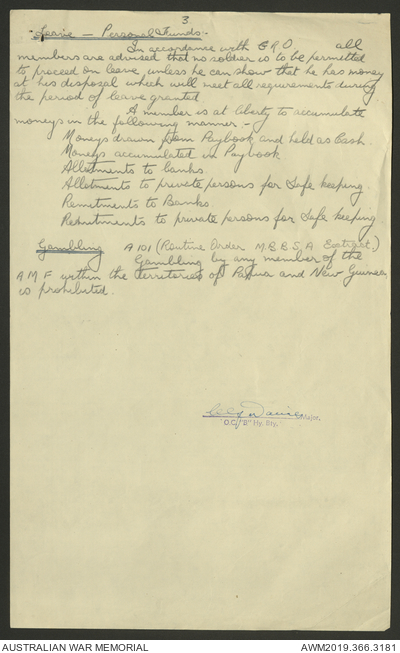 3
- Personal Funds.
In accordance with GRO all
members are advised that no soldier is to be permitted
to proceed on leave unless he can show that he has money
at his disposal which will meet all requirements during
the period of leave granted
A member is at liberty to accumulate
moneys in the following manner -
Moneys drawn from Paybook and held as Cash.
Moneys accumulated in Paybook
Allotments to banks
Allotments to private persons for safe keeping.
Remittments to Banks
Remittments to private persons for safe keeping
Gambling A101 (Routine Order M.E.B.S.A.
Gambling by any member of the
A M F within the territories of Papua and New Guinea
is prohibited.
Davies Major.
O.C. "B" Hy. Bty.
AUSTRALIAN WAR MEMORIAL AWM2019.366.3181